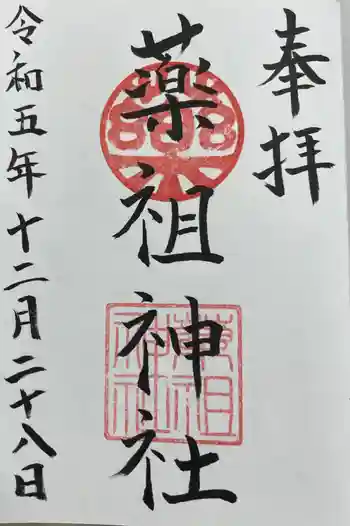 奉拝
薬祖神社
薬祖神社
令和五年十二月二十八日